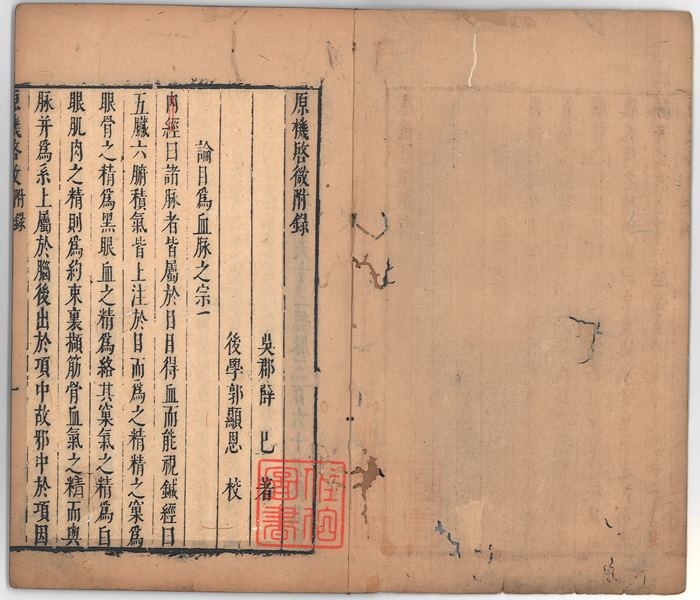 原機啓微附錄
吳郡薛 已 著
後學郭顯恩 校
論目爲血脉之宗一
內經曰諸脉者皆屬於目目得血而能視鍼經曰
五臟六腑積氣皆上注於目而爲之精精之窠爲
眼骨之精爲黑眼血之精爲絡其窠氣之精爲白
眼肌肉之精則爲約束裹擷筋骨血氣之精而與
脉并爲系上屬於腦後出於項中故邪中於項因
原機啓微附錄
一